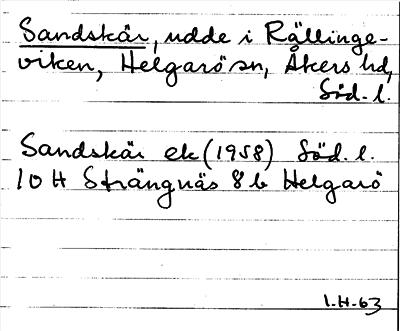 Sandskär, udde i Rällinge-
viken, Helgarö sn, Åkers hd,
Söd. l.
Sandskär ek (1958) Söd. l.
10 H Strängnäs 8 b Helgarö
I.H-63